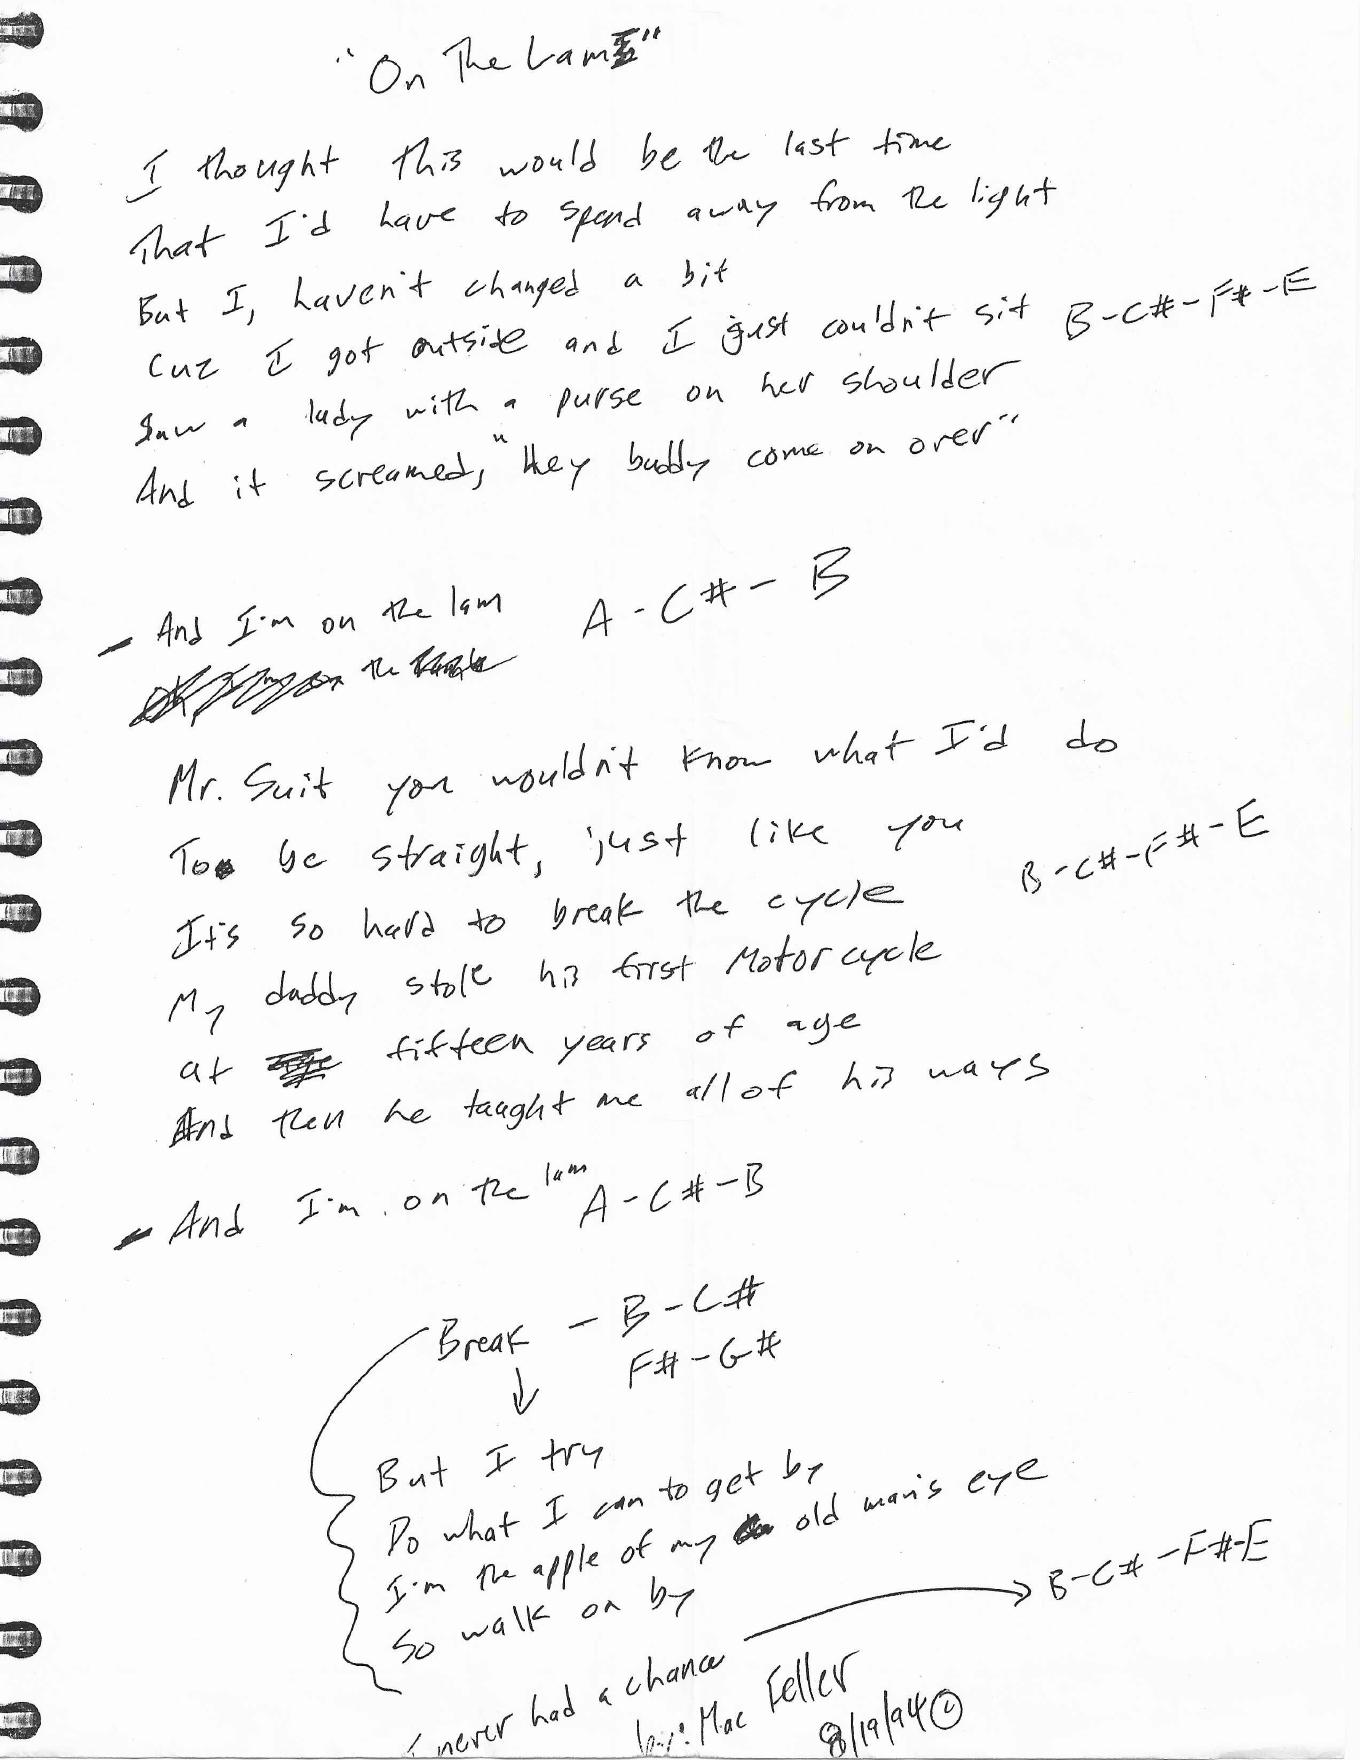 "On The Lam"
I thought this would be the last time
That I'd have to spend away from the light
But I, haven't changed a bit
Cuz I got outside and I just couldn't sit B-C#-F#-E
Saw a lady with a purse on her shoulder
And it screamed, "Hey buddy come on over"
- And I'm on the lam A-C#-B
the
Mr. Suit you wouldn't know what I'd do
To be straight, just like you
B-C#-F#-E
It's so hard to break the cycle
My daddy stole his first Motorcycle
at fifteen years of age
And then he taught me all of his ways
- And I'm on the lam A-C#-B
Break - B-C#
F#-G#
But I try
Do what I can to get by
I'm the apple of my old man's eye
So walk on by
B-C#-F#-E
I never had a chance
by: Mac Feller
8/19/94 ©